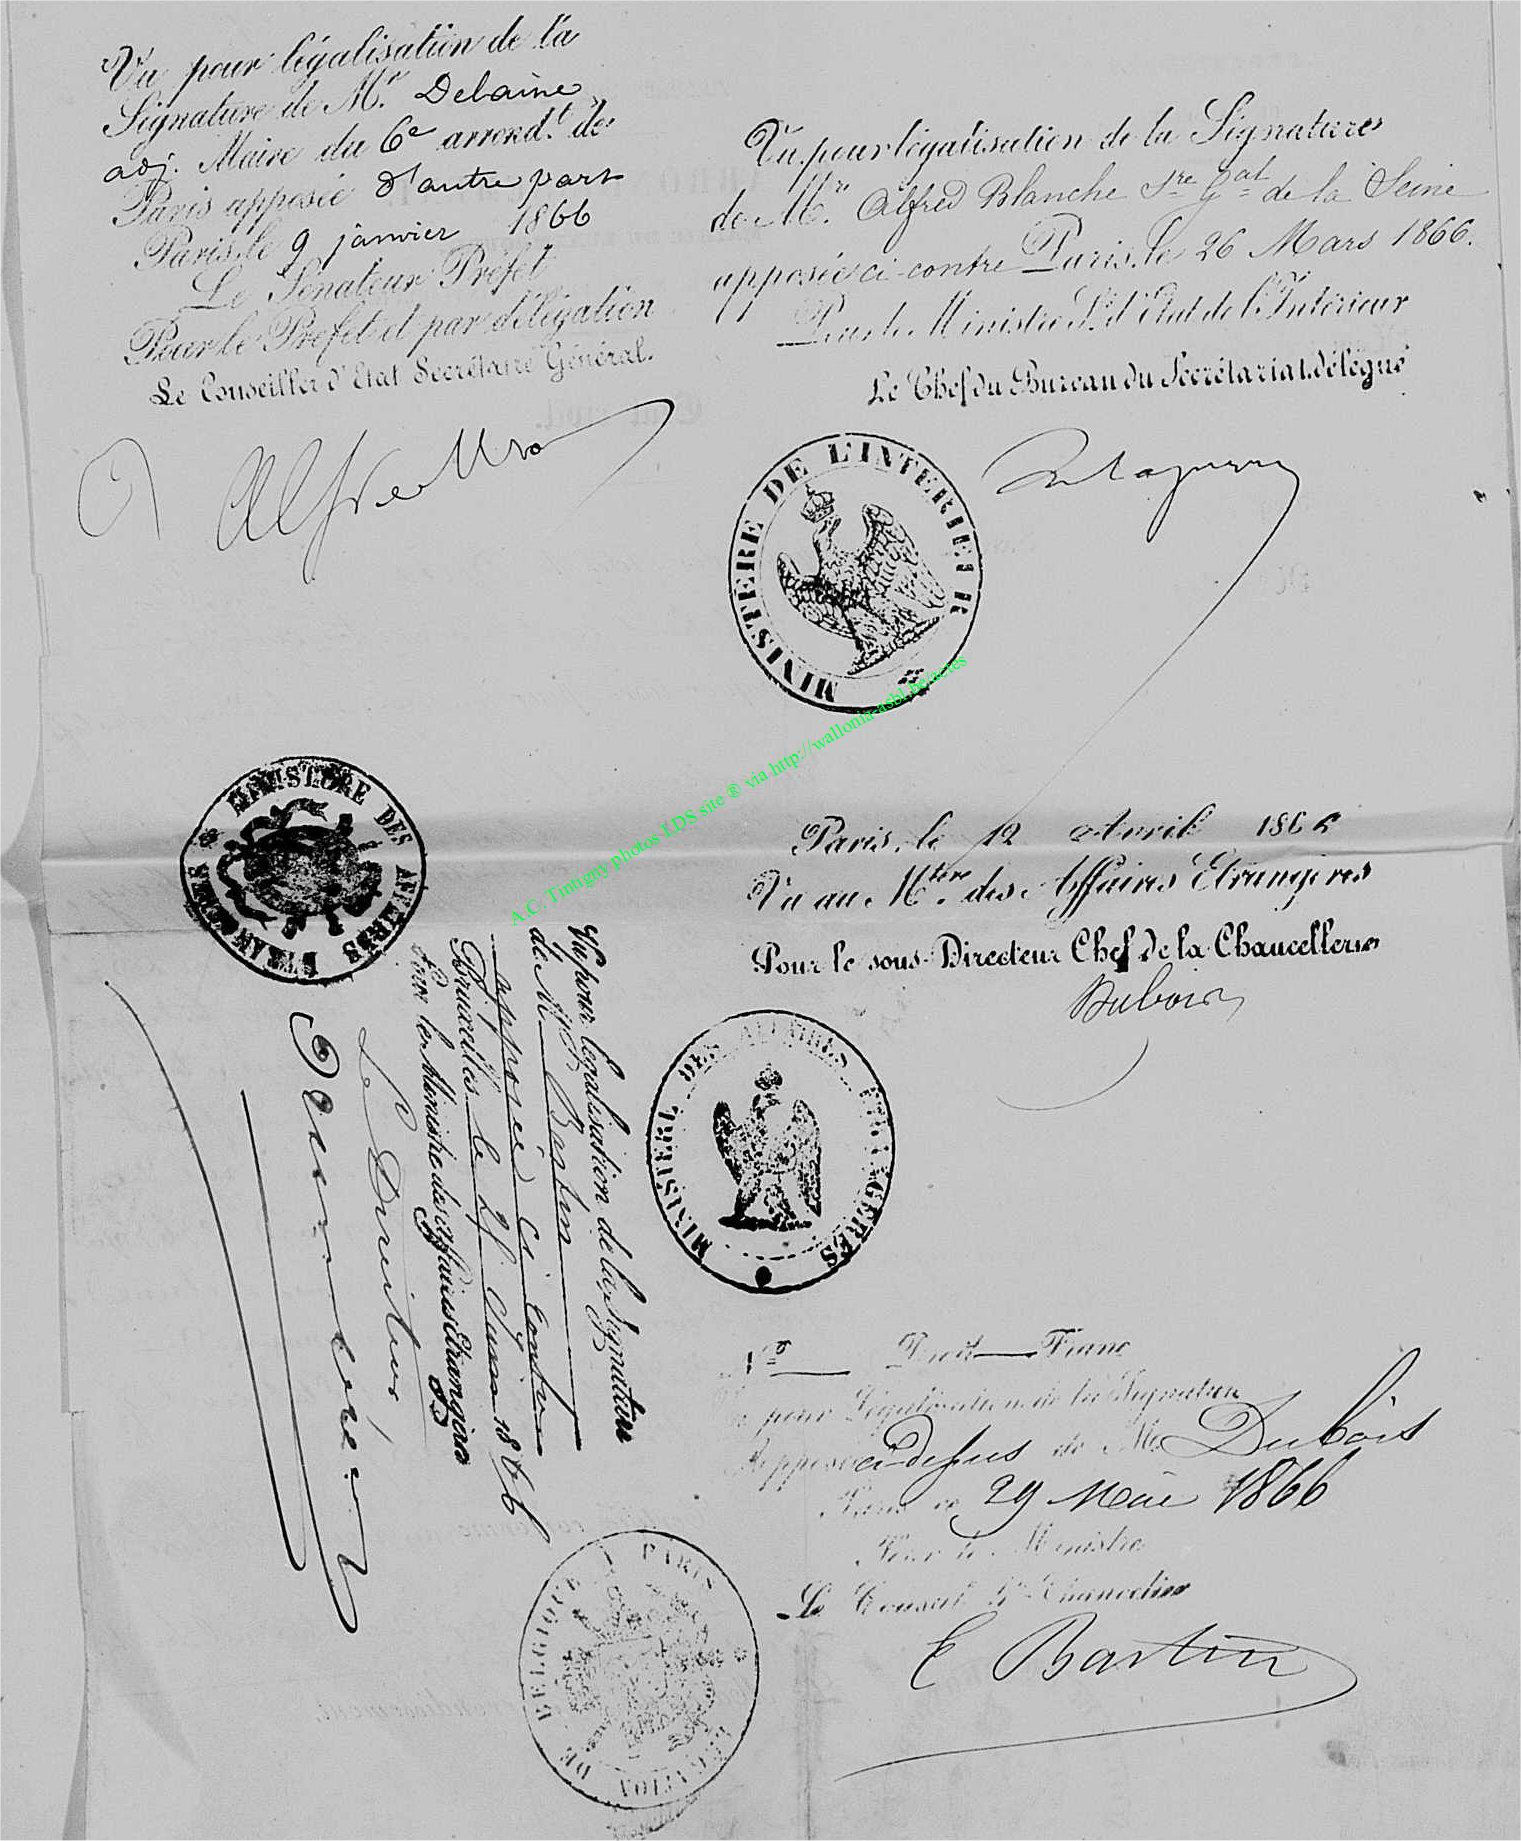 Vu pour légalisation de la
Signature de Mr. Delaine
adj. Maire du 6e arrondt. de
Paris apposée d'autre part
Paris, le 9 janvier 1866
Le Sénateur Préfet
Pour le Préfet et par délégation
Le Conseiller d'Etat Secrétaire Général.
Vu pour légalisation de la Signature
de Mr. Alfred Blanche Sre Gal de la Seine
apposée ci-contre Paris, le 26 Mars 1866.
Pour le Ministre St. d'Etat de l'Intérieur
Le Chef du Bureau du Secrétariat délégué
MINISTERE DE L'INTERIEUR
A.C. Tintigny photos LDS site ® via http://wallonia-asbl.be/actes
MINISTERE DES AFFAIRES ETRANGERES
Paris, le 12 Avril 1866
Vu au Mtère des Affaires Etrangères
Pour le sous-Directeur Chef de la Chancellerie
Dubois
MINISTERE DES AFFAIRES ETRANGERES
Vu pour légalisation de la Signature
de M Bartin
apposée ci contre
Bruxelles le 21 Juin 1866
Pour le Ministre des affaires Etrangères
Le Directeur
No Droit Franc
pour Légalisation de la Signature
Apposée ci-dessus de Mr Dubois
Paris ce 29 Mai 1866
Pour le Ministre
Le Consul Chancelier
E Bartin
LEGATION DE BELGIQUE A PARIS